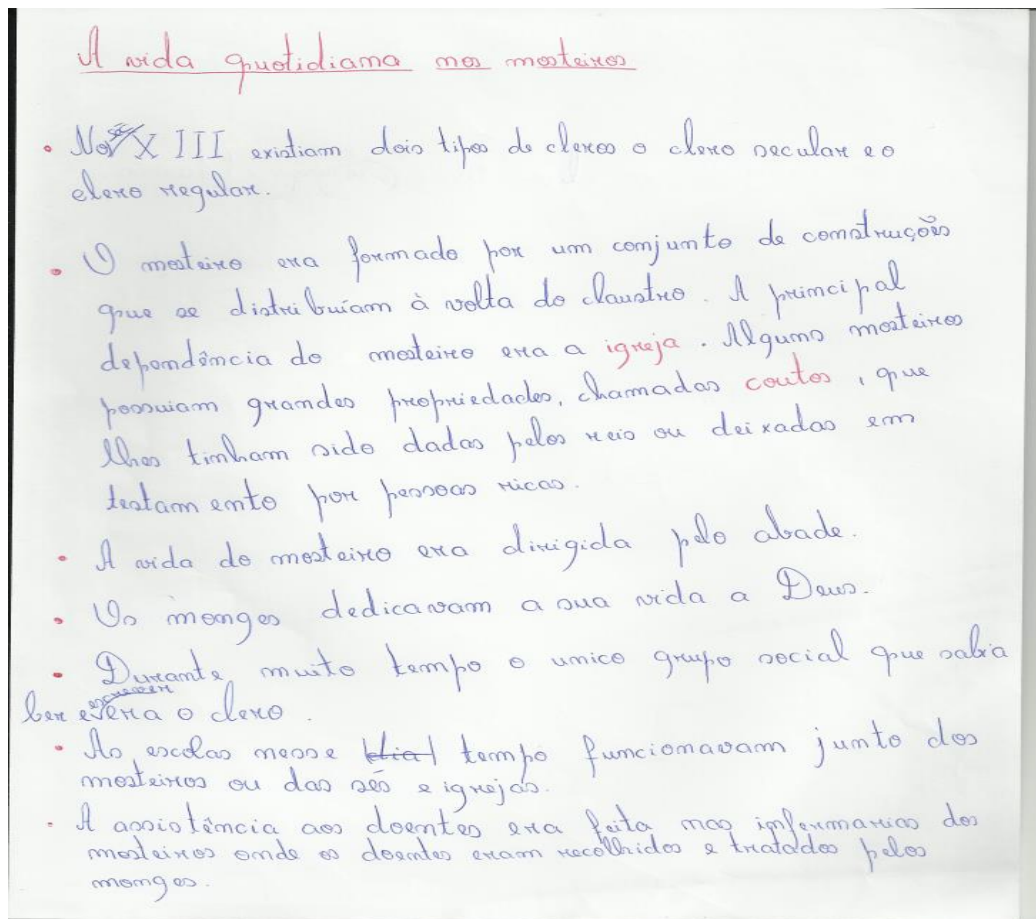 A vida quotidiana nos mosteiros
• No séc XIII existiam dois tipos de cleros o clero secular e o
clero regular.
• O mosteiro era formado por um conjunto de construções
que se distribuíam à volta do claustro. A principal
dependência do mosteiro era a igreja. Alguns mosteiros
possuiam grandes propriedades, chamadas coutos, que
lhes tinham sido dadas pelos reis ou deixadas em
testamento por pessoas ricas.
• A vida do mosteiro era dirigida pelo abade.
• Os monges dedicavam a sua vida a Deus.
• Durante muito tempo o unico grupo social que sabia
ler e escrever era o clero.
• As escolas nesse tempo funcionavam junto dos
mosteiros ou das sés e igrejas.
• A assistência aos doentes era feita nas infermarias dos
mosteiros onde os doentes eram recolhidos e tratados pelos
monges.